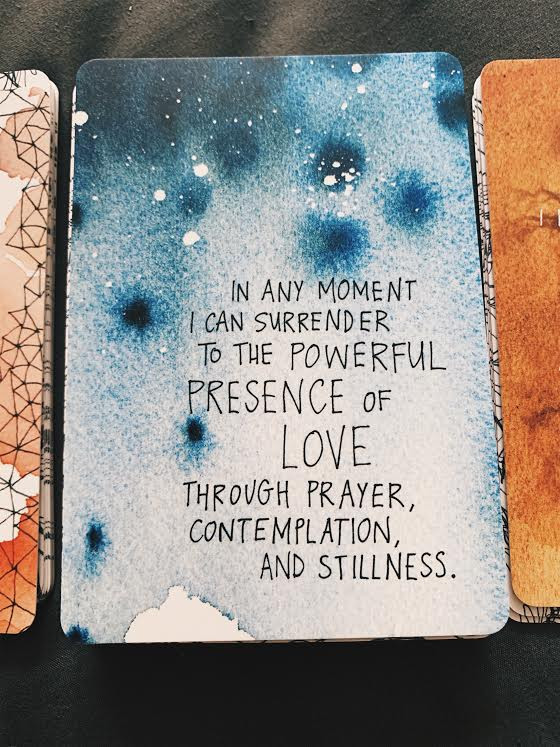 IN ANY MOMENT
I CAN SURRENDER
TO THE POWERFUL
PRESENCE OF
LOVE
THROUGH PRAYER,
CONTEMPLATION,
AND STILLNESS.